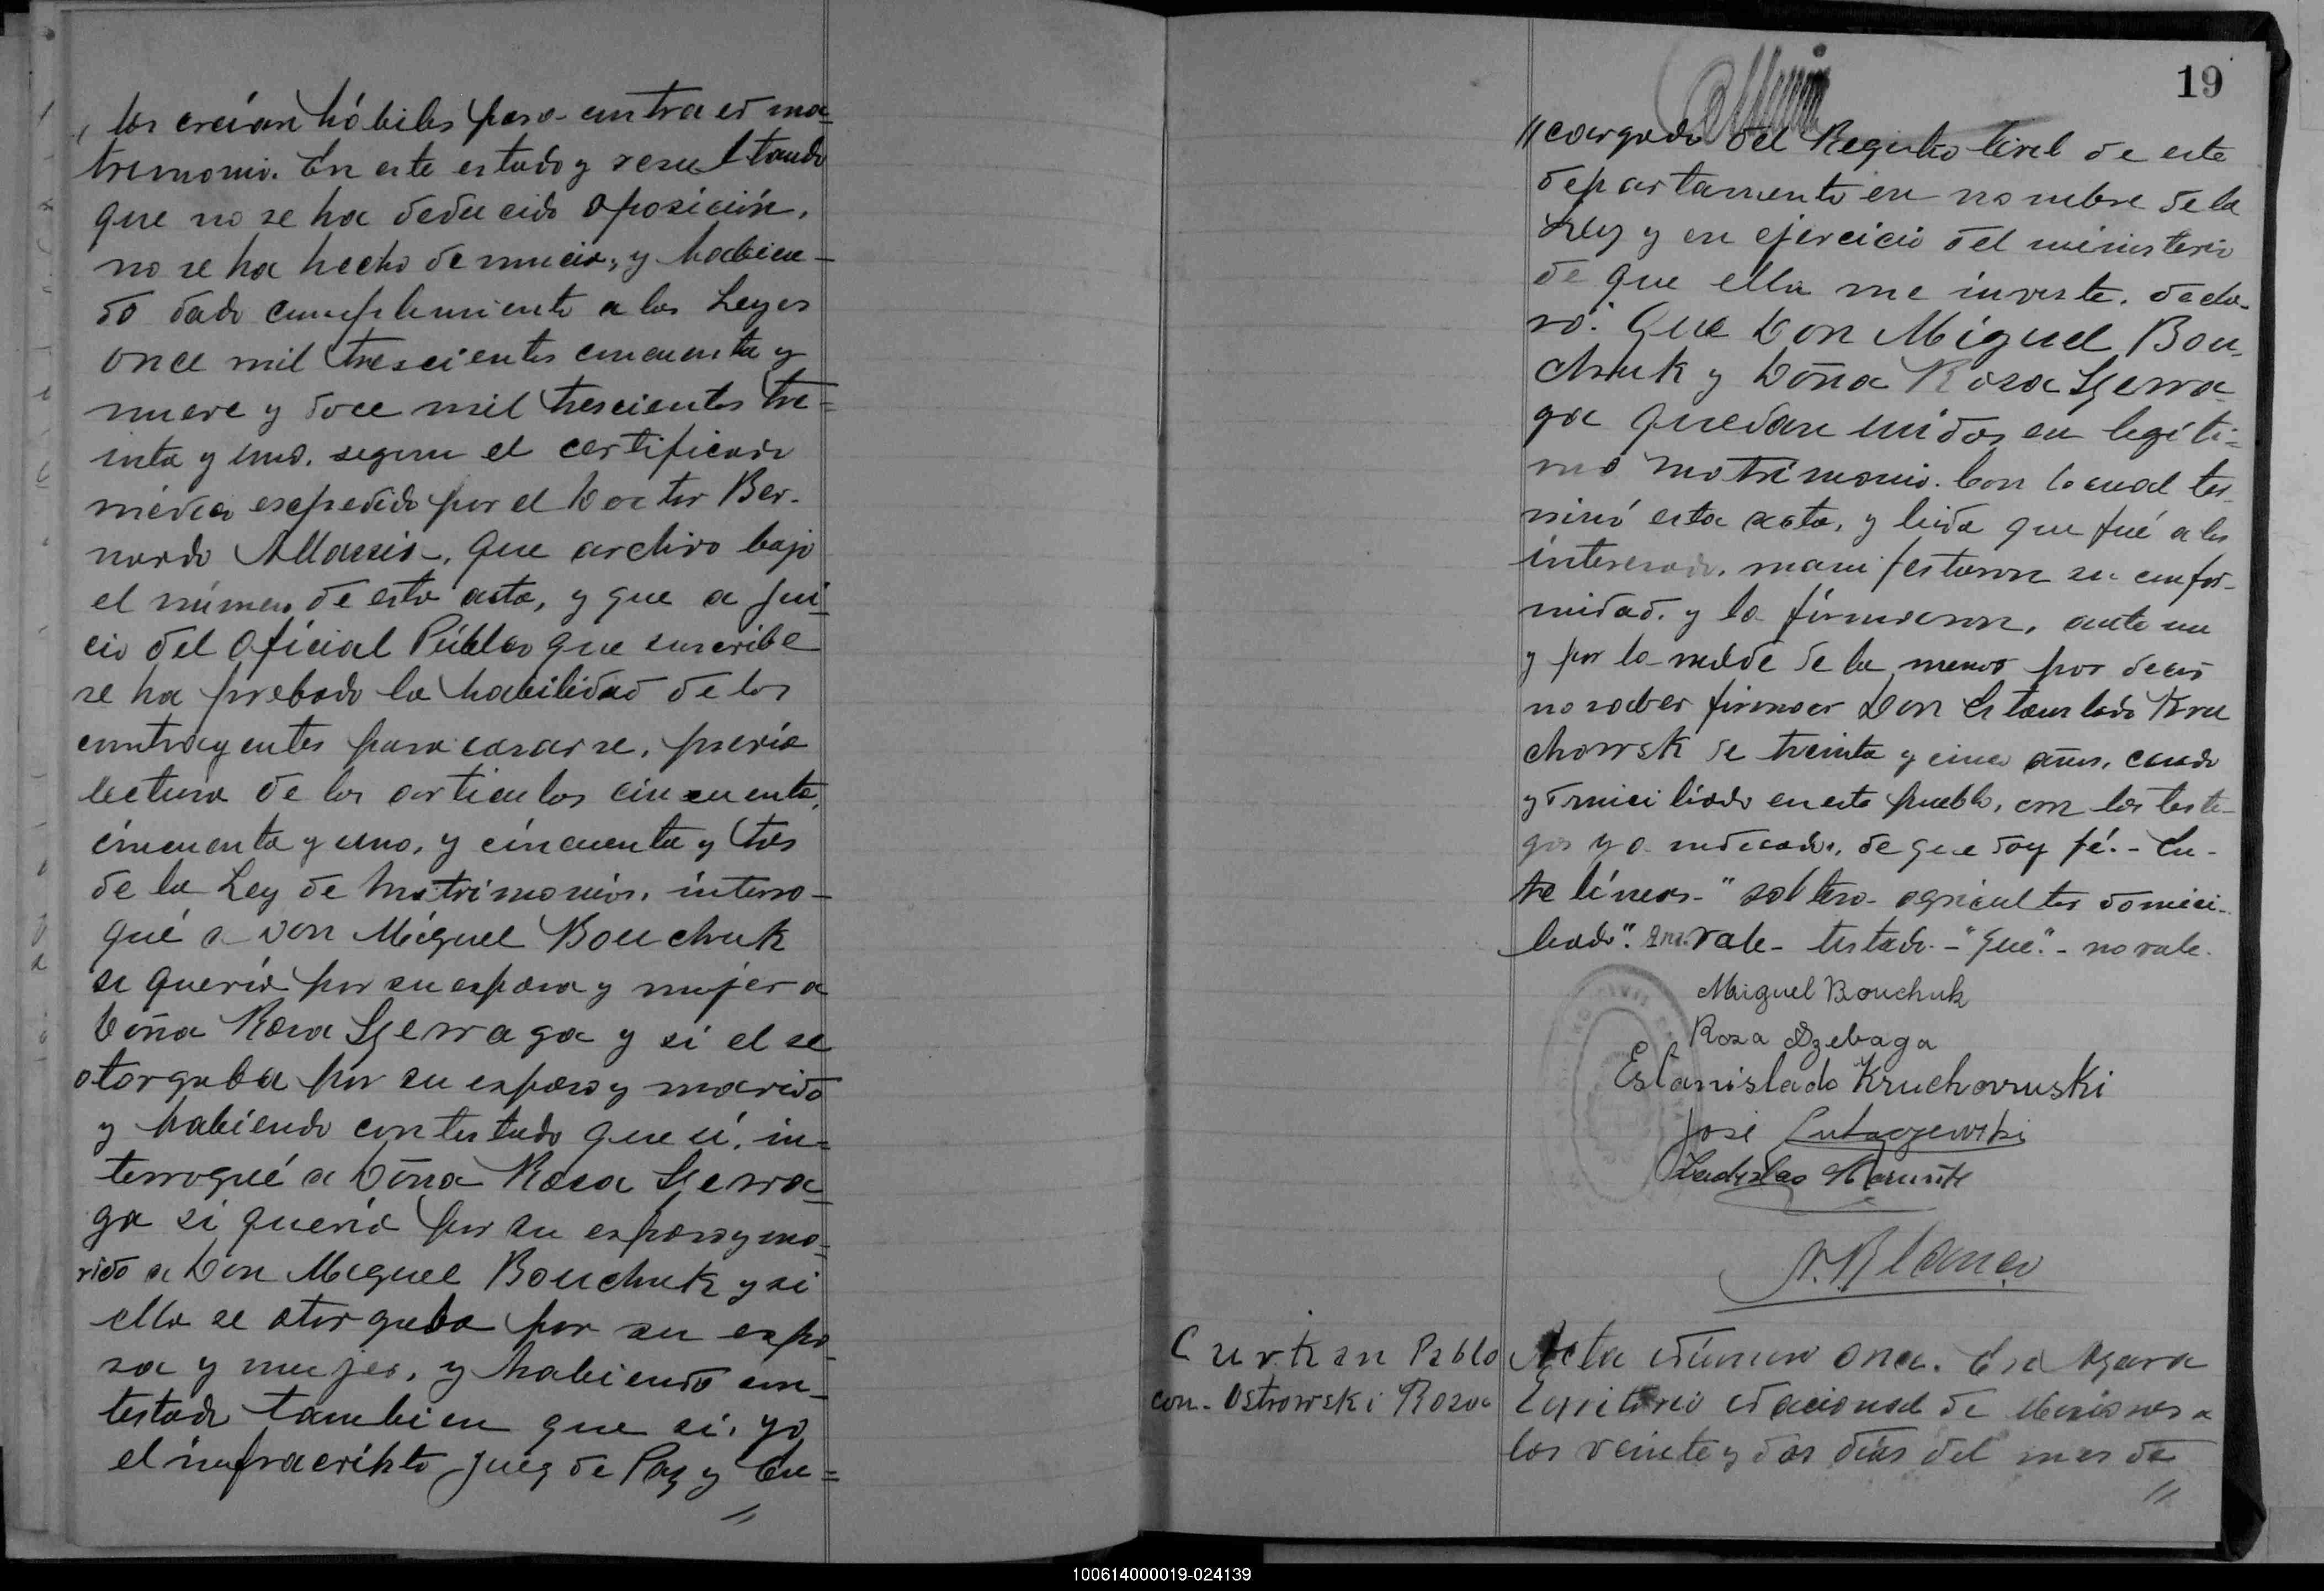 los creían hábiles para contraer ma-
trimonio. En este estado y resultando
que no se ha deducido oposición,
no se ha hecho denuncia, y habien-
do dado cumplimiento a las Leyes
once mil trescientos cincuenta y
nueve y doce mil trescientos tre=
inta y uno, segun el certificado
médico expedido por el Doctor Ber-
nardo que archivo bajo
el número de esta acta, y que a jui-
cio del Oficial Público que suscribe
se ha probado la habilidad de los
contrayentes para casarse, previa
lectura de los articulos cincuenta,
cincuenta y uno, y cincuenta y tres
de la Ley de Matrimonios, interro-
gué a Don Miguel Bouchuk
si quería por su esposa y mujer a
Doña Rosa Gzerraga y si el se
otorgaba por su esposo y marido
y habiendo contestado que sí, in=
terrogué a Doña Rosa Gzerra-
ga si quería por su esposo y ma-
rido a Don Miguel Bouchuk y si
ella se otorgaba por su espo-
sa y mujer, y habiendo con-
testado tambien que sí, yo
el infrascripto Juez de Paz y En=
//
19
//cargado del Registro Civil de este
departamento en nombre de la
Ley y en ejercicio del ministerio
de que ella me inviste, decla-
ró: Que Don Miguel Bou-
chuk y Doña Rosa Gzerra-
ga quedan unidos en legíti=
mo matrimonio. Con lo cual ter-
minó esta acta, y leida que fué a los
interesados, manifestaron su confor-
midad, y la firmaron, ante mi
y por la madre de la menor por decir
no saber firmar Don Estanislado Kru
chowsk de treinta y cinco años, casado
y domiciliado en este pueblo, con los testi-
gos ya indicados, de que doy fé.- En-
tre líneas-" soltero- agricultor domici-
liado". vale- testado-"que"- no vale.
Miguel Bouchuk
Rosa Dzebaga
Estanislado Kruchowuski
José Lukaszewski
Ladislao
A. Blanco
Curkan Pablo
con- Ostrowski Rosa
Acta Número Once. En Azara
Territorio Nacional de Misiones a
los veinte y dos dias del mes de
//
100614000019-024139